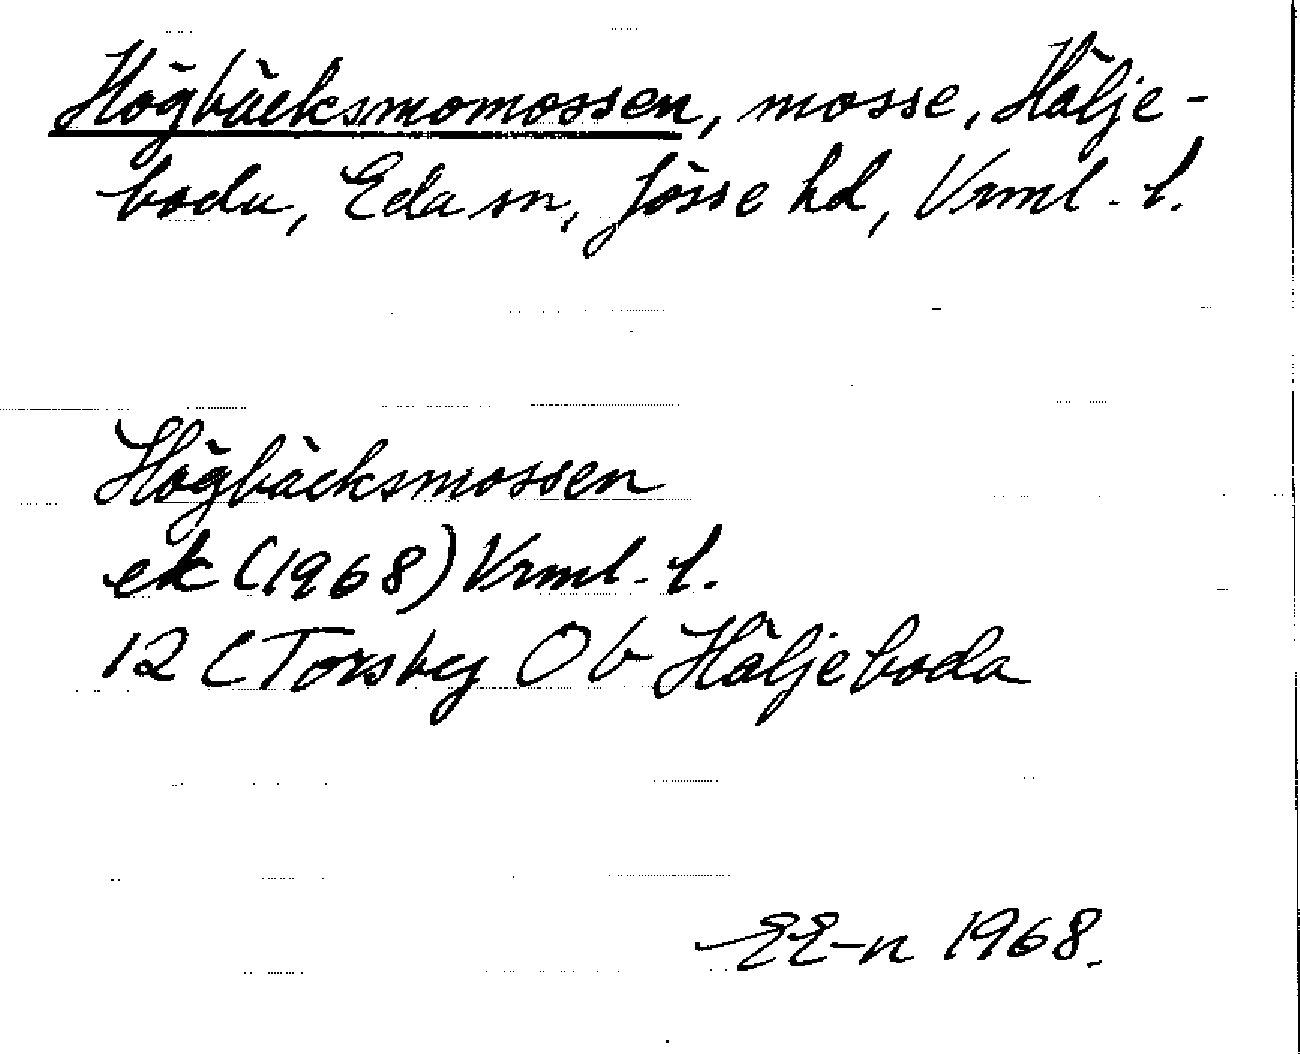 Högbäcksmomossen, mosse, Hälje-
boda, Eda sn, Jösse hd, Vrml. l.
Högbäcksmossen
ek (1968) Vrml. l.
12 C Torsby O b Häljeboda
EE-n 1968.